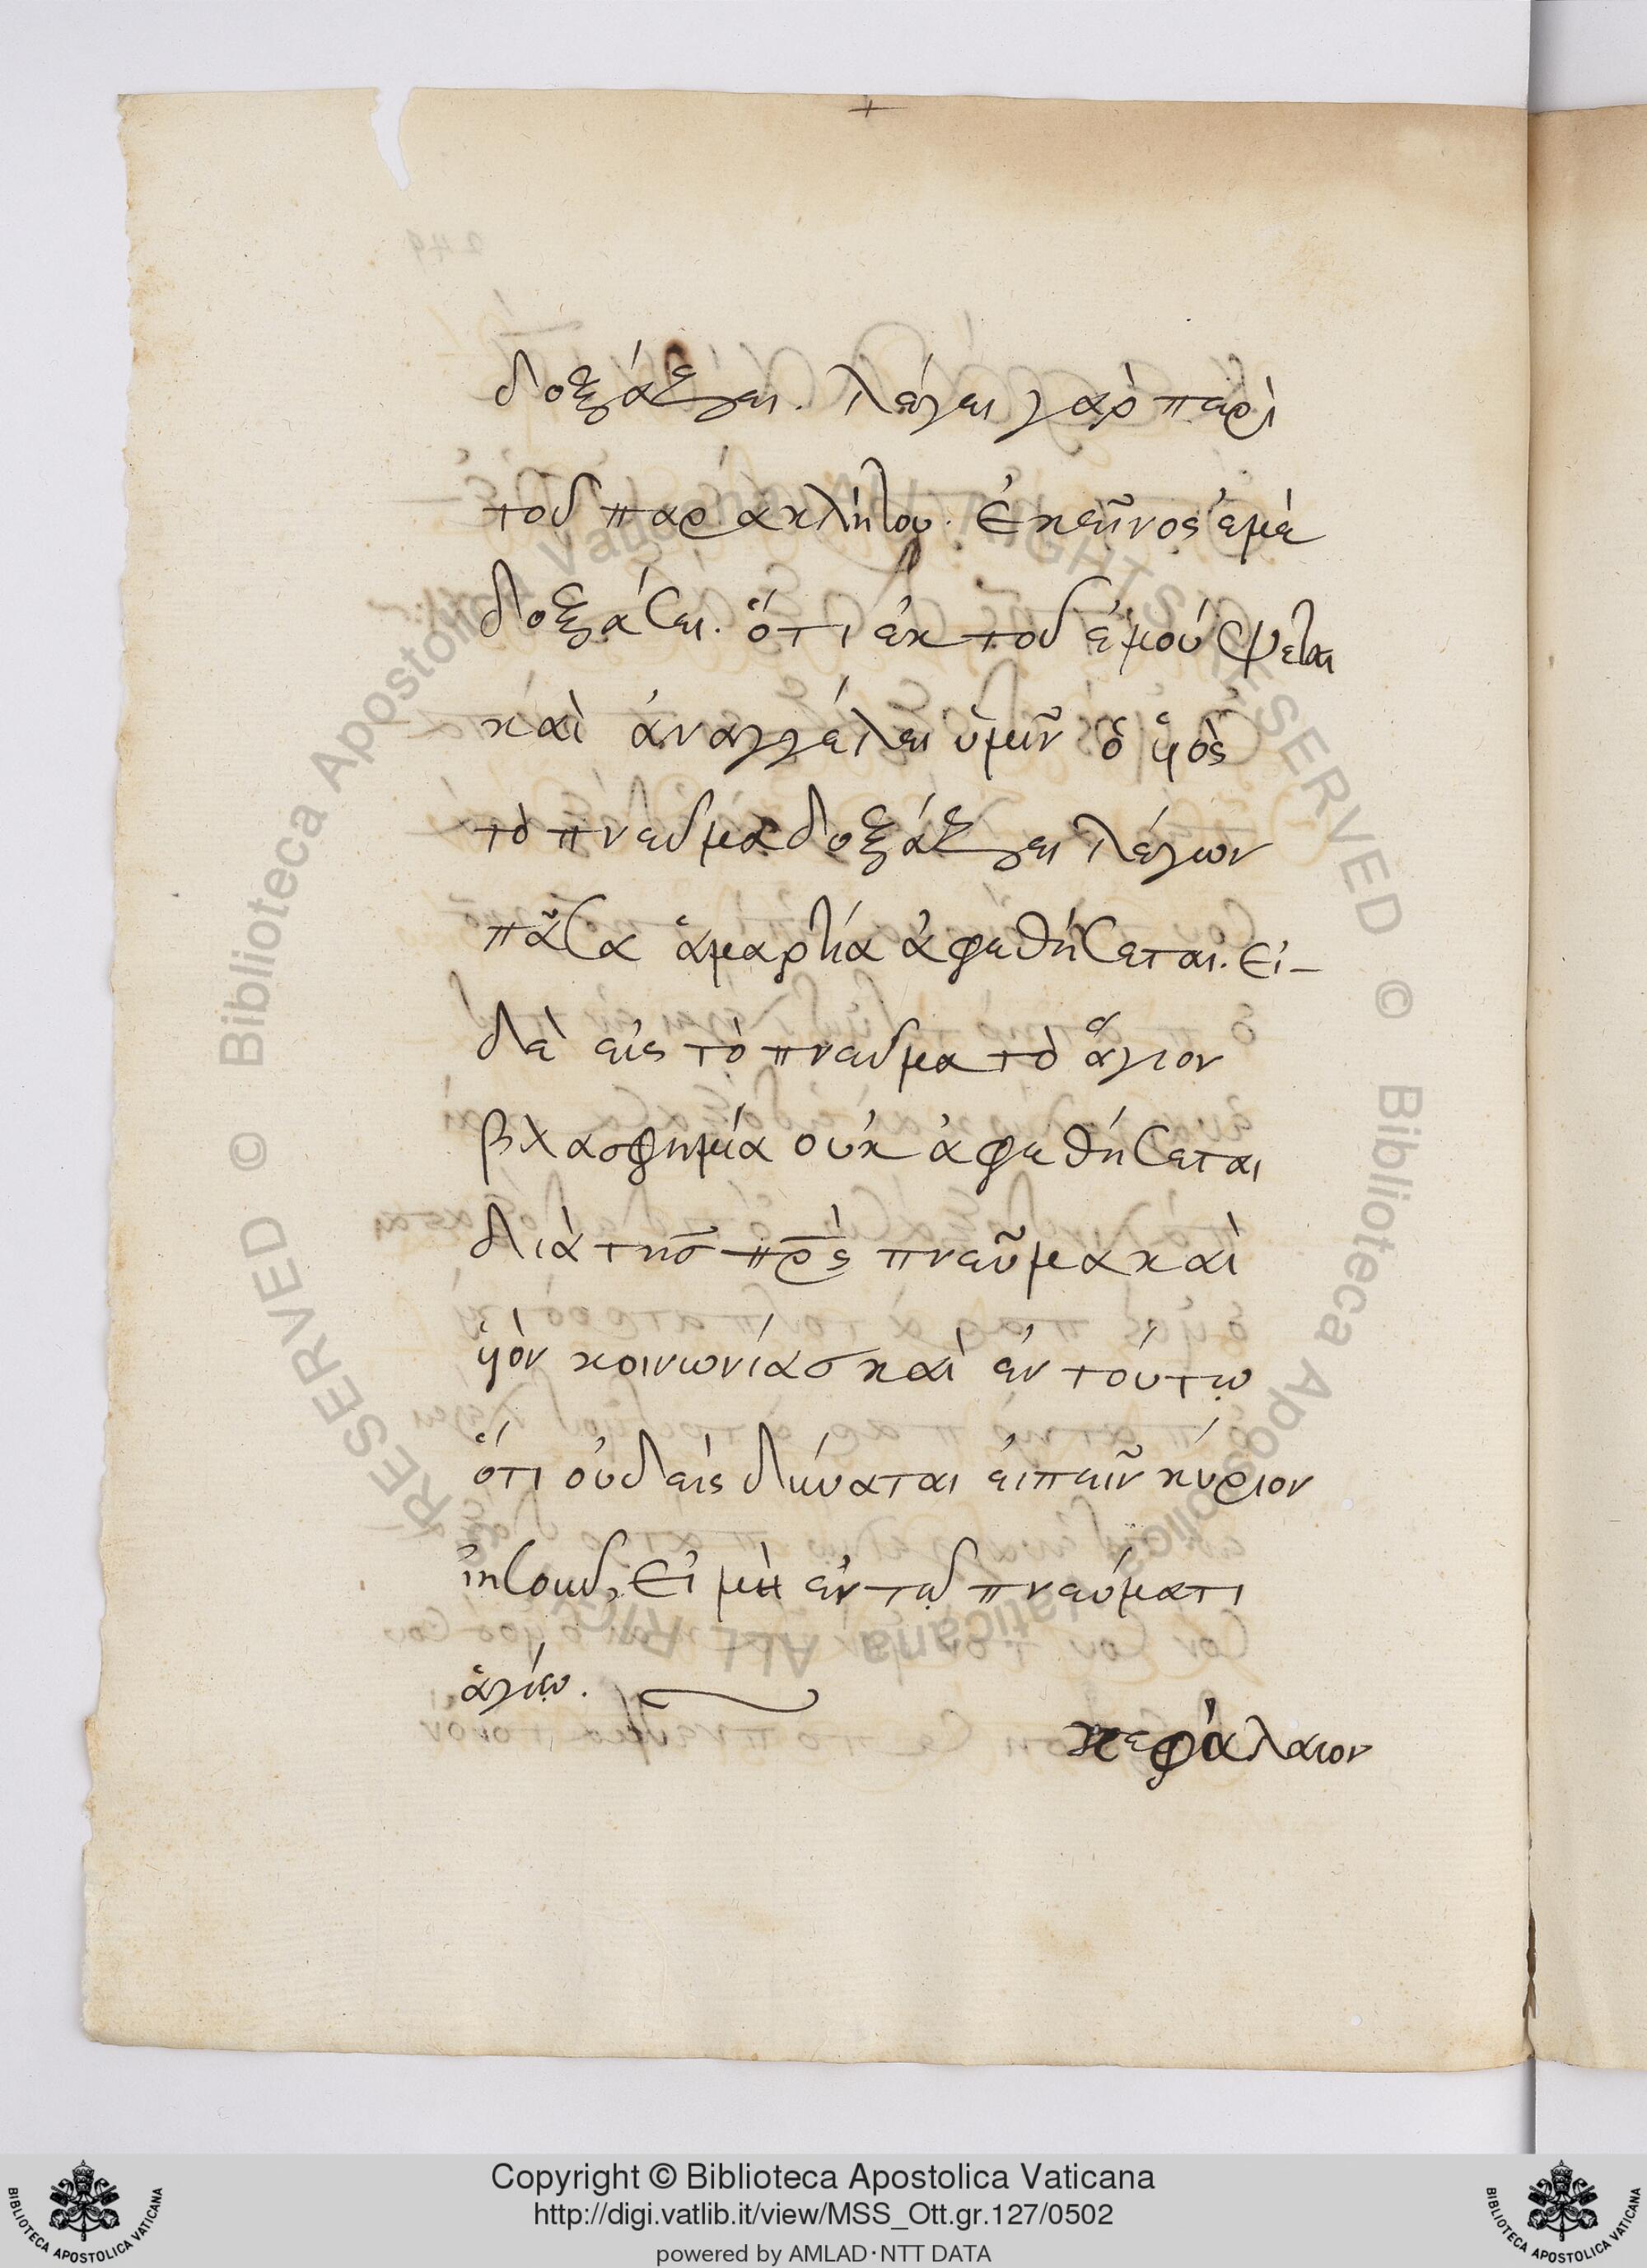 δοξάζει. λέγει γὰρ περὶ
τοῦ παρακλήτου. ἐκεῖνος ἐμὲ
δοξάσει. ὅτι ἐκ τοῦ ἐμοῦ ψεται
καὶ ἀναγγέλει ὑμῖν ὁ ὑιὸς
τὸ πνεῦμα δοξάζει λέγων
πᾶσα ἁμαρτία ἀφεθήσεται. εἰ-
δὲ εἰς τὸ πνεῦμα τὸ ἅγιον
βλασφημία οὐκ ἀφεθήσεται
διὰ τῆς πρὸς πνεῦμα καὶ
ὑιὸν κοινωνίας καὶ ἐν τούτῳ
ὅτι οὐδεὶς δύναται εἰπεῖν κύριον
ἰησοῦν, εἰ μὴ ἐν τῷ πνεύματι
ἁγίῳ.
κεφάλαιον
Copyright © Biblioteca Apostolica Vaticana
http://digi.vatlib.it/view/MSS_Ott.gr.127/0502
powered by AMLAD·NTT DATA
BIBLIOTECA APOSTOLICA VATICANA
BIBLIOTECA APOSTOLICA VATICANA
© Biblioteca Apostolica Vaticana ALL RIGHTS RESERVED
© Biblioteca Apostolica Vaticana ALL RIGHTS RESERVED